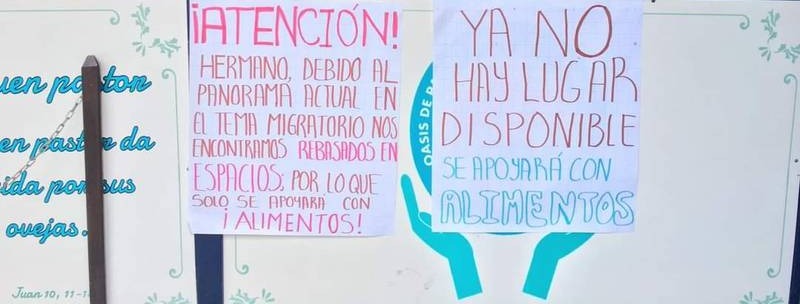 ¡ATENCIÓN!
HERMANO, DEBIDO AL
PANORAMA ACTUAL EN
EL TEMA MIGRATORIO NOS
ENCONTRAMOS REBASADOS EN
ESPACIOS; POR LO QUE
SOLO SE APOYARÁ CON
¡ALIMENTOS!
YA NO
HAY LUGAR
DISPONIBLE
SE APOYARÁ CON
ALIMENTOS
pastor
pastor da
por sus
ovejas.
Juan 10, 11-
OASIS DE